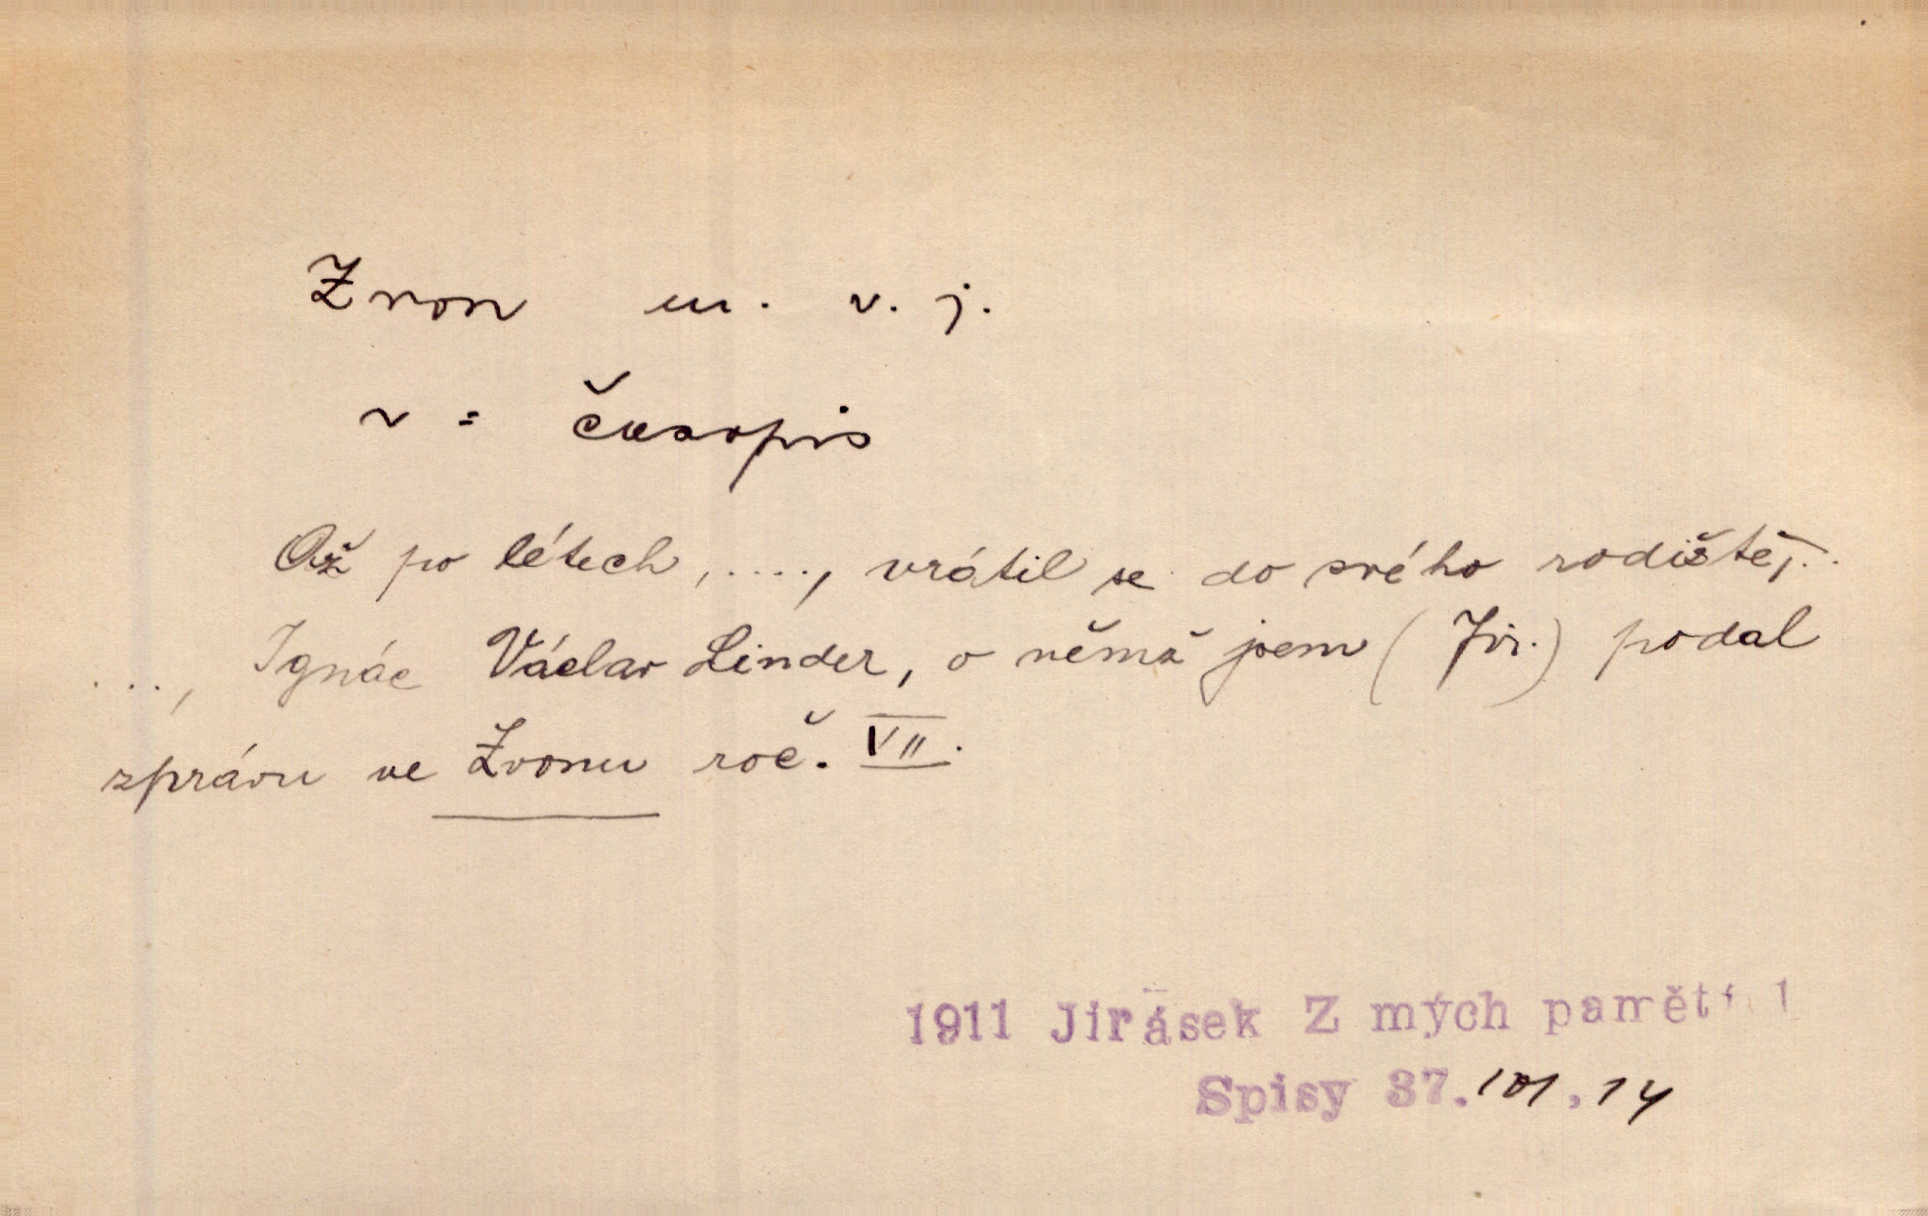 Zvon m. v. j.
v = časopis
Až po létech, ...., vrátil se do svého rodiště, ..
..., Ignác Václav Linder, o němž jsem (Jir.) podal
zprávu ve Zvonu roč. VII.
1911 Jirásek Z mých pamětí 1
Spisy 37. 101, 14